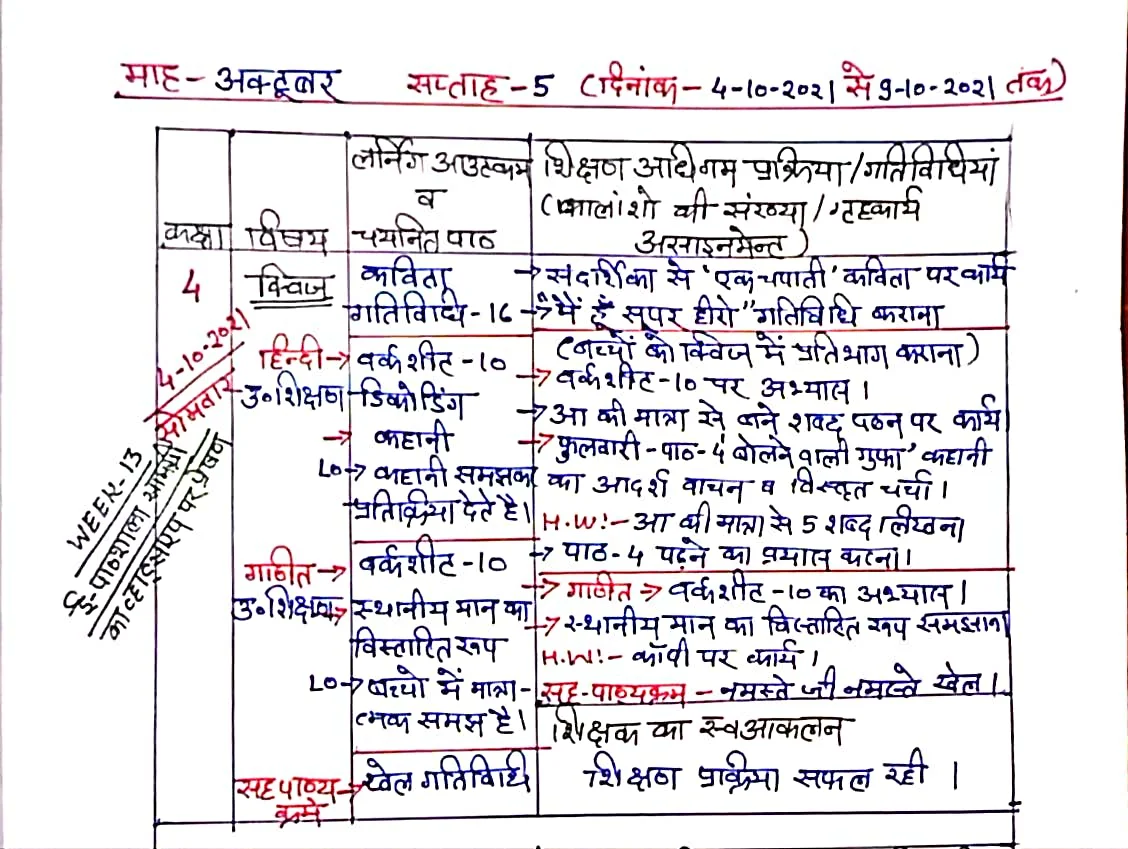 माह - अक्टूबर सप्ताह - 5 (दिनांक - 4-10-2021 से 9-10-2021 तक)
कक्षा
विषय
लर्निंग आउटकम
व
चयनित पाठ
शिक्षण अधिगम प्रक्रिया/गतिविधियां
(कालांशो की संख्या/गृहकार्य
असाइनमेन्ट)
4
4-10-2021
सोमवार
WEEK-13
ई-पाठशाला सामग्री
का व्हाट्सएप पर प्रेषण
क्विज
कविता
गतिविधि - 16
→ संदर्शिका से 'एक चपाती' कविता पर कार्य
→ "मैं हूँ सुपर हीरो" गतिविधि कराना
(बच्चों को क्विज में प्रतिभाग कराना)
हिन्दी →
उ०शिक्षण
→
वर्कशीट - 10
डिकोडिंग
कहानी
LO → कहानी समझकर
प्रतिक्रिया देते है।
→ वर्कशीट - 10 पर अभ्यास।
→ आ की मात्रा से बने शब्द पठन पर कार्य
→ फुलवारी - पाठ - 4 'बोलने वाली गुफा' कहानी
का आदर्श वाचन व विस्तृत चर्चा।
H.W:- आ की मात्रा से 5 शब्द लिखना
→ पाठ - 4 पढ़ने का प्रयास करना।
गणित →
उ०शिक्षण →
वर्कशीट - 10
स्थानीय मान का
विस्तारित रूप
LO → बच्चो में मात्रा-
त्मक समझ है।
→ गणित → वर्कशीट - 10 का अभ्यास।
→ स्थानीय मान का विस्तारित रूप समझाना
H.W:- कॉपी पर कार्य।
सह-पाठ्यक्रम - नमस्ते जी नमस्ते खेल।
सह पाठ्य →
क्रम
खेल गतिविधि
शिक्षक का स्वआकलन
शिक्षण प्रक्रिया सफल रही।